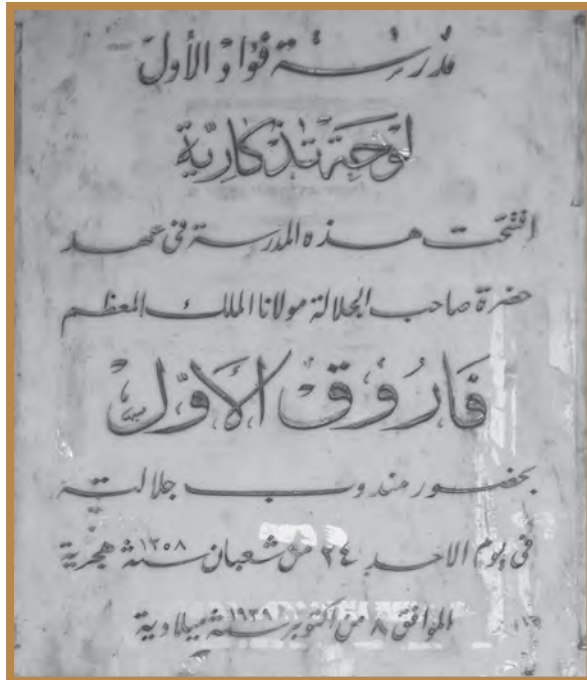 مدرسة فؤاد الأول
لوحة تذكارية
افتتحت هذه المدرسة فى عهد
حضرة صاحب الجلالة مولانا الملك المعظم
فاروق الأول
بحضور مندوب جلالته
فى يوم الاحد ٢٤ من شعبان سنة ١٣٥٨ هجرية
الموافق ٨ من اكتوبر سنة ١٩٣٩ ميلادية